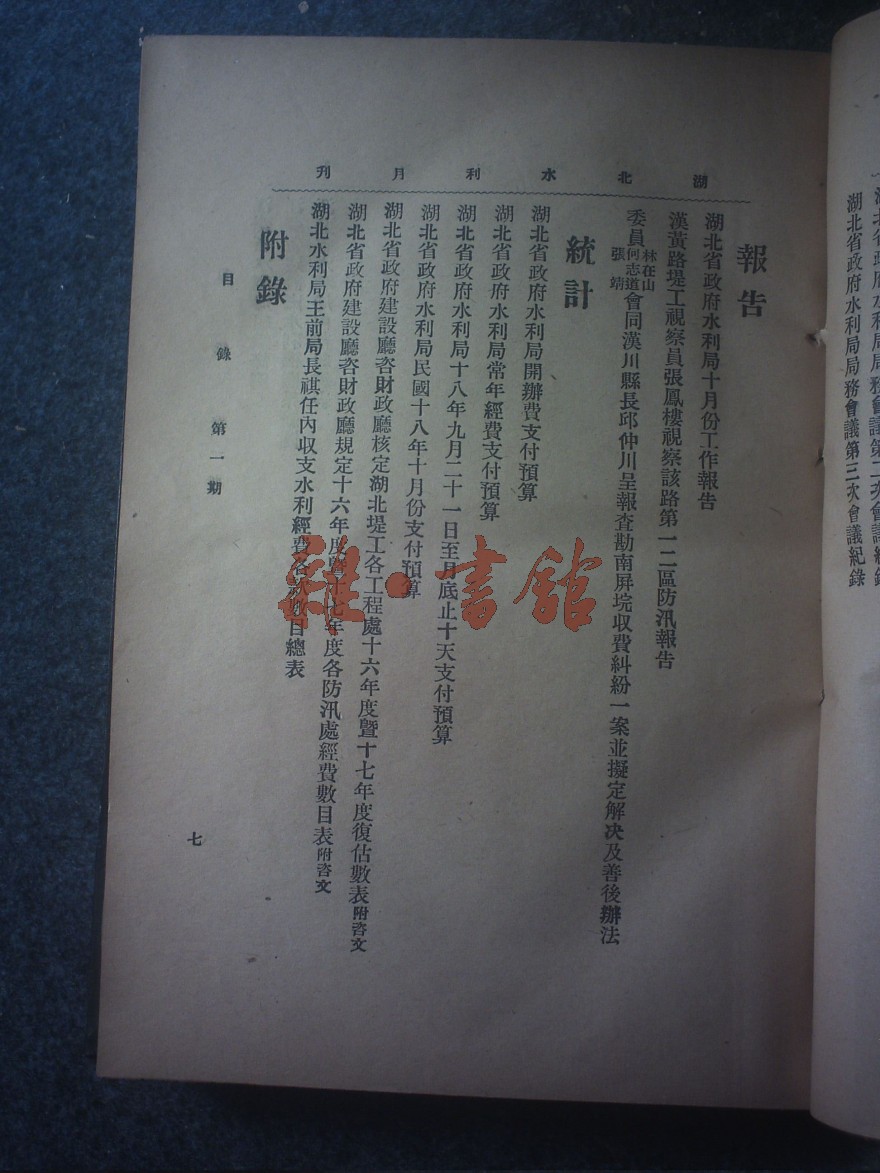 湖北省政府水利局局務會議第三次會議紀錄
湖北水利月刊
報告
湖北省政府水利局十月份工作報告
漢黃路堤工視察員張鳳樓視察該路第一二區防汛報告
委員林在山何志道張靖會同漢川縣長邱仲川呈報查勘南屏垸收費糾紛一案並擬定解決及善後辦法
統計
湖北省政府水利局開辦費支付預算
湖北省政府水利局常年經費支付預算
湖北省政府水利局十八年九月二十一日至月底止十天支付預算
湖北省政府水利局民國十八年十月份支付預算
湖北省政府建設廳咨財政廳核定湖北堤工各工程處十六年度暨十七年度復估數表附咨文
湖北省政府建設廳咨財政廳規定十六年度暨十七年度各防汛處經費數目表附咨文
湖北水利局王前局長祺任內收支水利經費各款數目總表
附錄
目錄 第一期
七
雜·書館